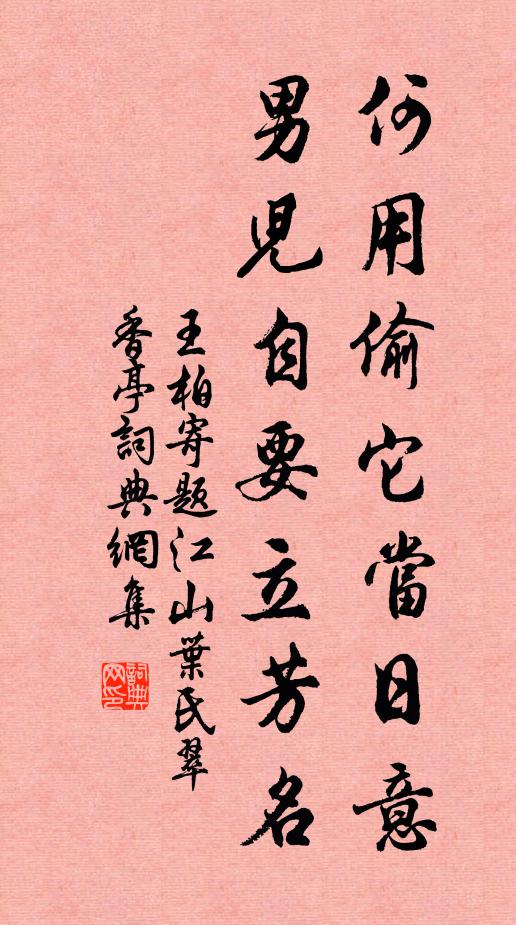 何用偷它當日意
男兒自要立芳名
王柏寄题江山葉氏翠
香亭詞典網集
詞典網印